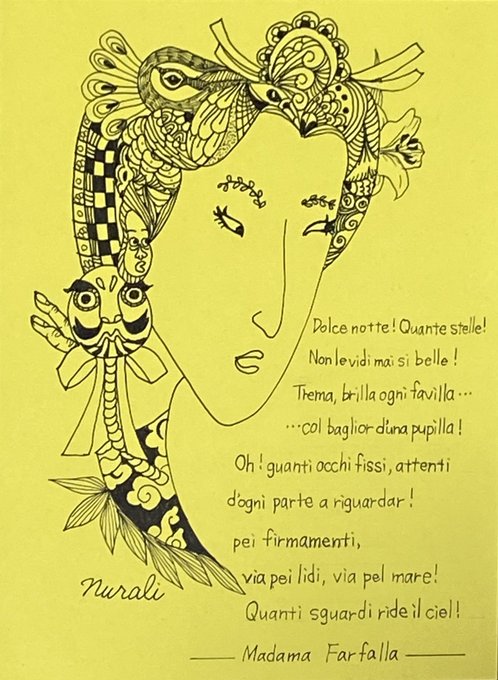 Dolce notte! Quante stelle!
Non le vidi mai si belle!
Trema, brilla ogni favilla...
...col baglior d'una pupilla!
Oh! guanti occhi fissi, attenti
d'ogni parte a riguardar!
pei firmamenti,
via pei lidi, via pel mare!
Quanti sguardi ride il ciel!
Madama Farfalla
Nurali